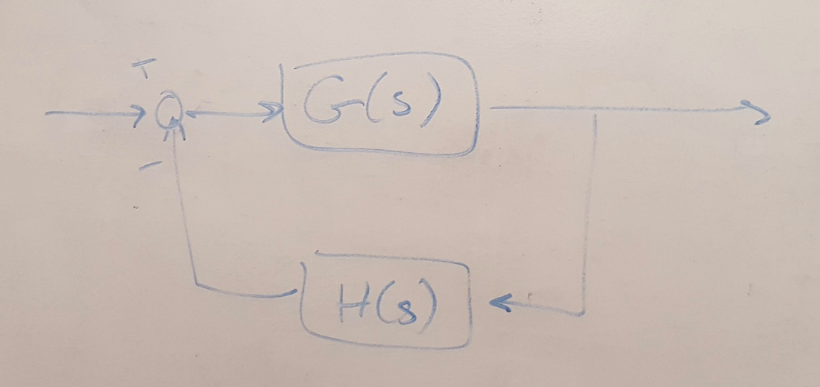 +
G(s)
-
H(s)